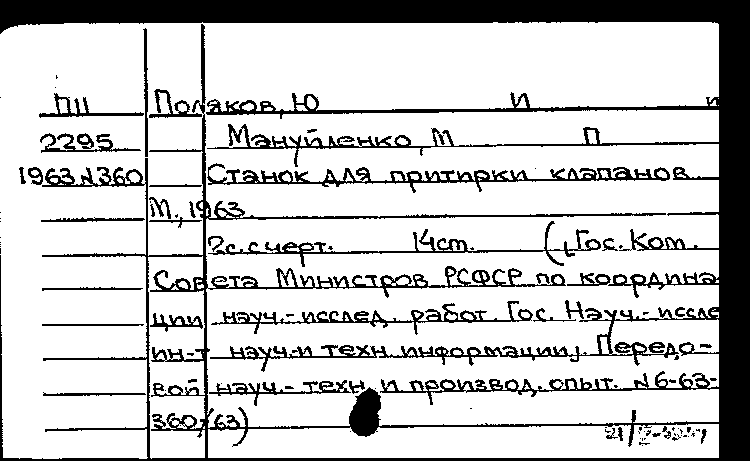 ПII Поляков, Ю И и
2295 Мануйленко, М П
1963 №360 Станок для притирки клапанов
М., 1963
2с. с черт. 14см. (Гос. Ком.
Совета Министров РСФСР по координа
ции науч.-исслед. работ. Гос. Науч.-иссле
ин-т науч.и техн. информации). Передо-
вой науч.- техн. и производ. опыт. №6-63-
360/(63)